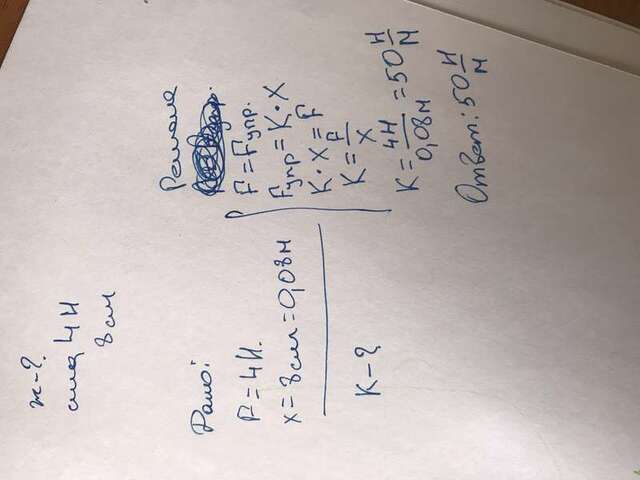 ж-?
сила 4Н
8см
Дано:
F = 4Н.
x = 8см = 0,08м
K - ?
Решение
F = Fупр.
Fупр = K · X
K · X = F
K = F/X
K = 4Н/0,08м = 50 Н/М
Ответ: 50 Н/м